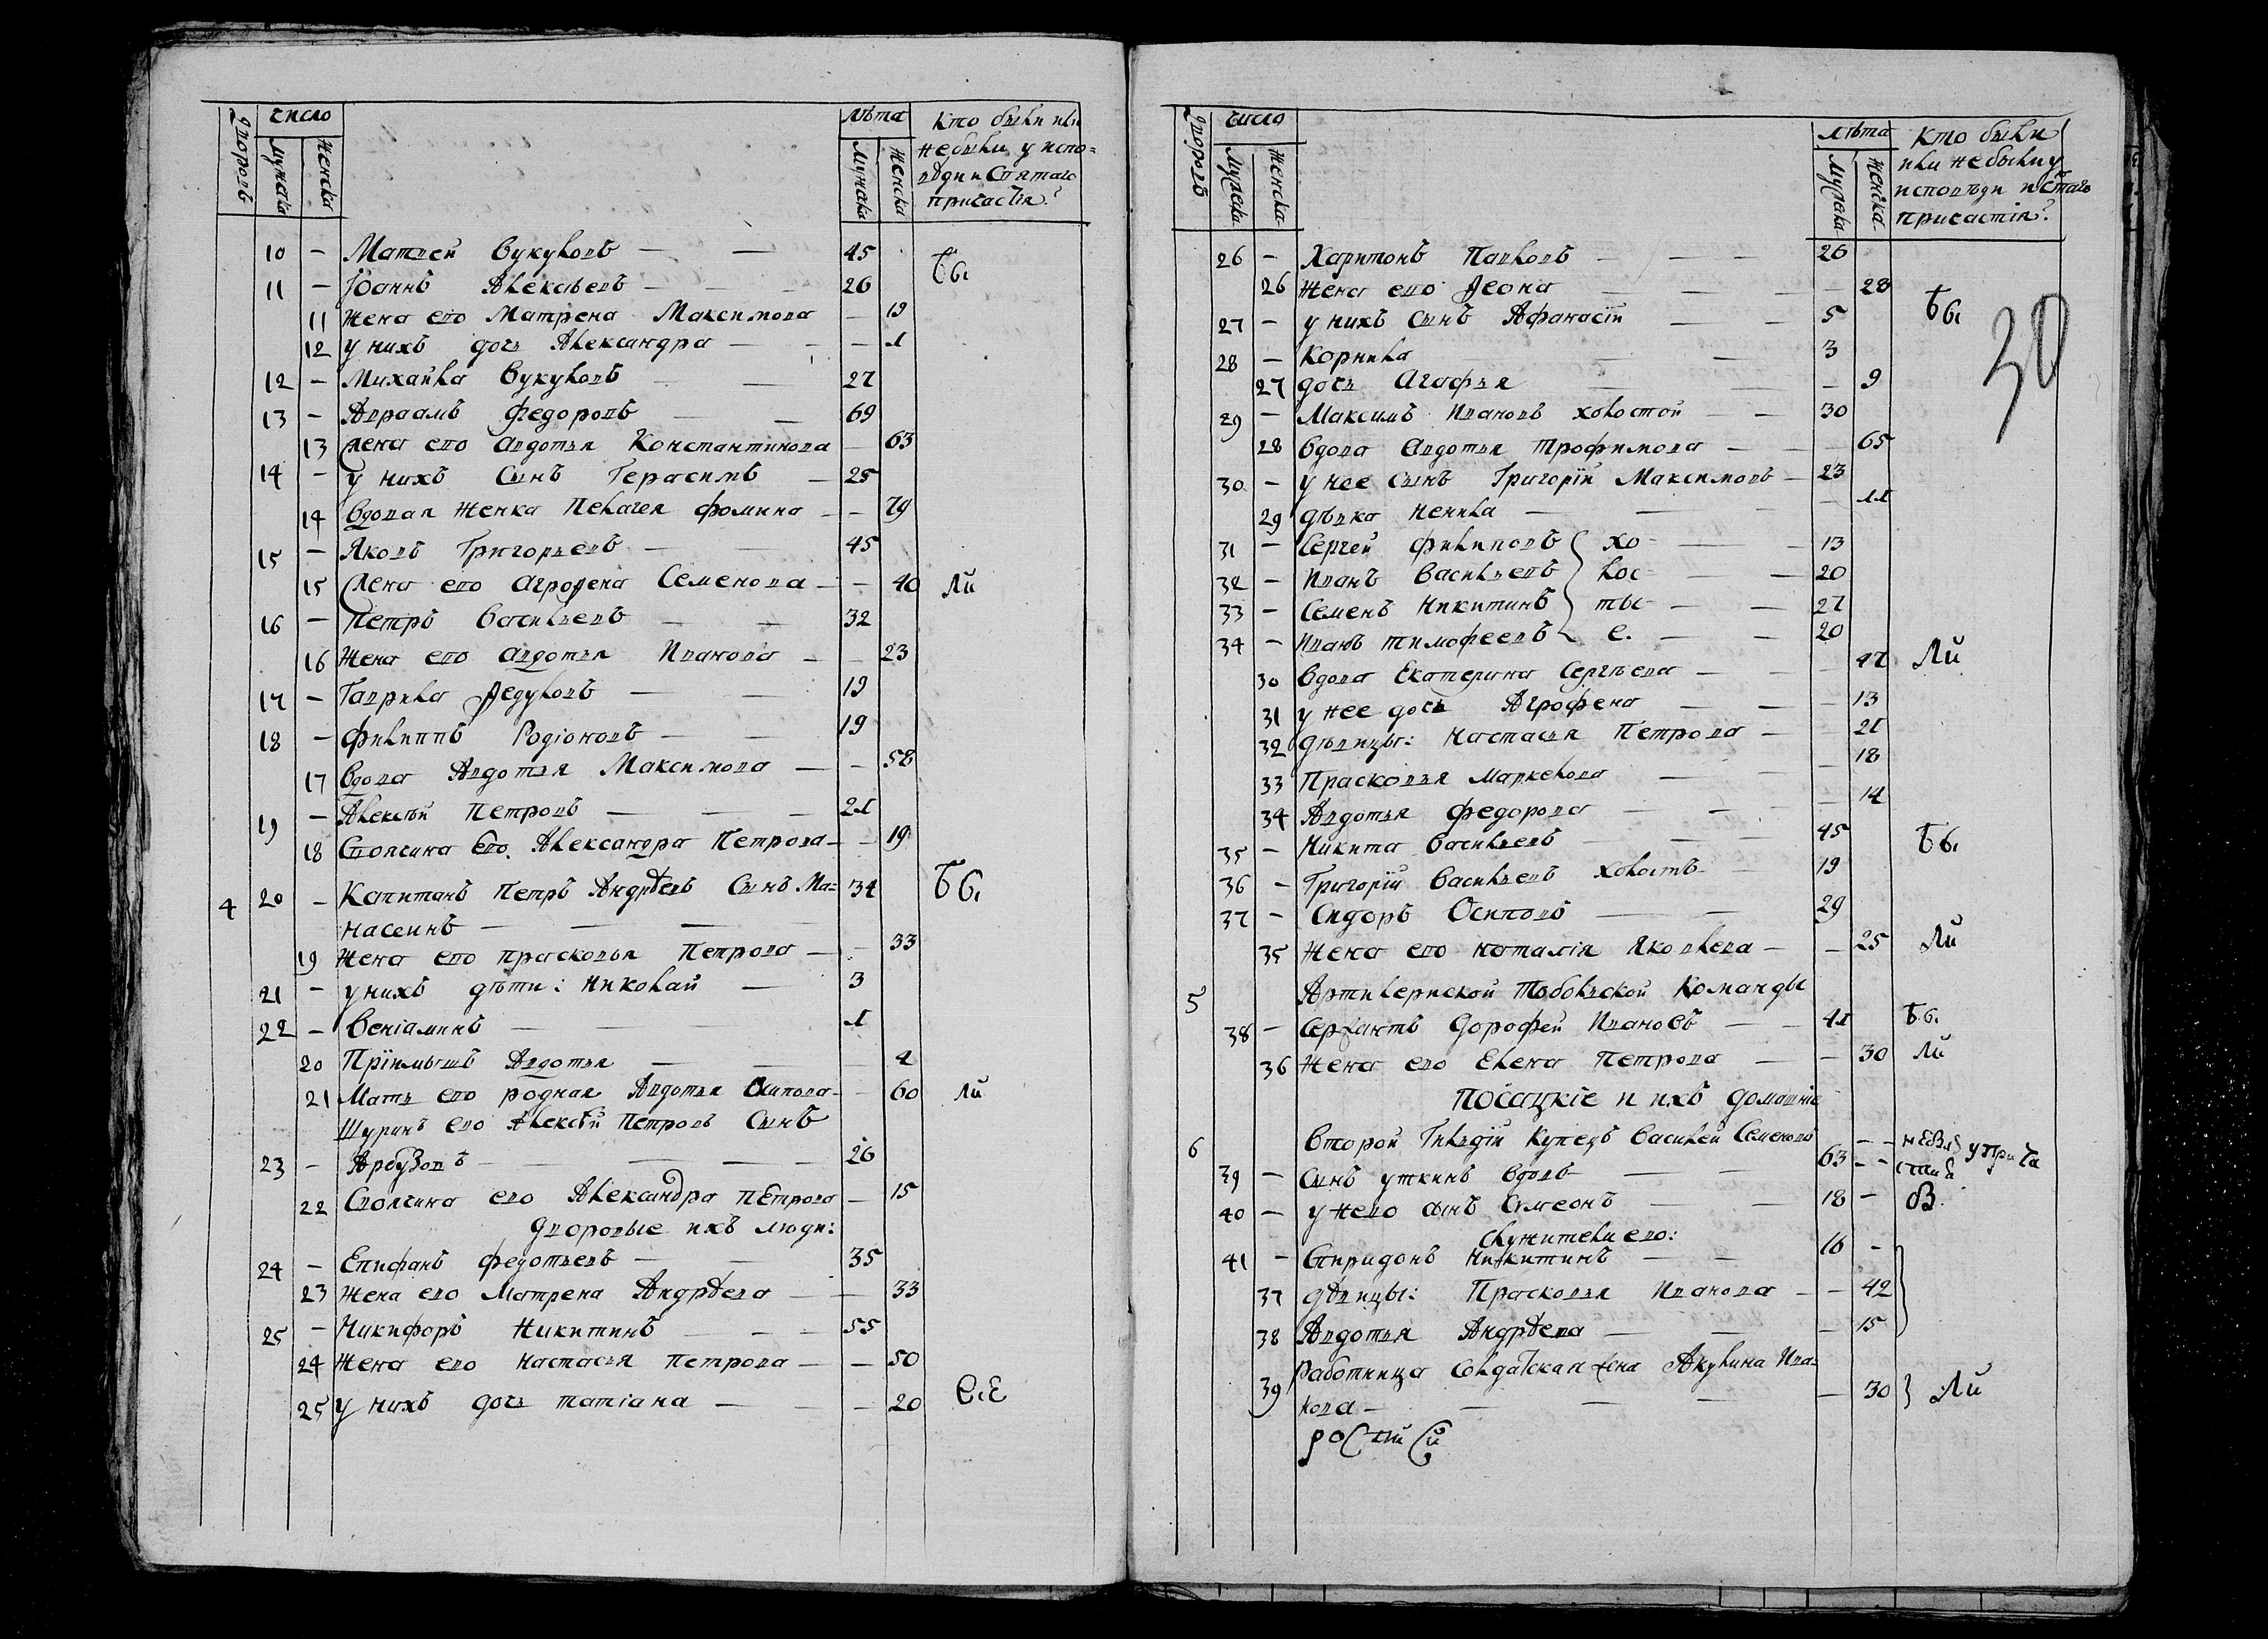 дворовъ
число
мужска
женска
лѣта
мужска
женска
Кто были или
не были у испо=
вѣди и Святаго
причастія?
10 — Матвей Вукуловъ — — 45
Бы
11 — Іоаннъ Алексѣевъ — — 26
11 Жена его Матрена Максимова — 19
12 у нихъ дочь Александра — — 1
12 — Михайла Вукуловъ — 27
13 — Авраамъ Федоровъ — 69
13 Жена его Авдотья Константинова — 63
14 — у нихъ сынъ Герасимъ — 25
14 Вдовая женка Пелагея Фомина — — 79
15 — Яковъ Григорьевъ — — 45
15 Жена его Агрофена Семенова — — 40 ли
16 — Петръ Васильевъ — — 32
16 Жена его Авдотья Иванова — — 23
17 — Гаврила Федуловъ — — 19
18 — Филиппъ Родіоновъ — — 19
17 Вдова Авдотья Максимова — — 58
19 — Алексѣй Петровъ — — — 21
18 Своячина его Александра Петрова — — 19
4 20 — Капитанъ Петръ Андрѣевъ Сынъ Ма= 34 Бы
насеинъ — — —
19 Жена его Прасковья Петрова — — 33
21 — у нихъ дѣти: Николай — 3
22 — Веніаминъ — — — 1
20 Пріимышъ Авдотья — — 4
21 Мать его родная Авдотья Осипова — — 60 ли
Шуринъ его Алексѣй Петровъ Сынъ
23 — Арбузовъ — — — 26
22 Своячина его Александра Петрова — 15
Дворовые ихъ люди:
24 — Епифанъ Федотьевъ — — 35
23 Жена его Матрена Андрѣева — — 33
25 — Никифоръ Никитинъ — — — 55
24 Жена его Настасья Петрова — — 50
25 у нихъ дочь Татіана — — — 20
дворовъ
число
мужска
женска
лѣта
мужска
женска
Кто были
или не были у
исповѣди и Стаго
причастія?
30
26 — Харитонъ Павловъ — — — 26
26 Жена его Феона — — — — 28
Бы
27 — у нихъ сынъ Афанасій — — 5
28 — Корнила — — — 3
27 дочь Агафья — — 9
29 — Максимъ Ивановъ холостой — — 30
28 Вдова Авдотья Трофимова — — 65
30 — у нее сынъ Григорій Максимовъ — 23
29 дѣвка Ненила — — — — 11
31 — Сергей Филиповъ } хо — — 13
32 — Иванъ Васильевъ } лос — — 20
33 — Семенъ Никитинъ } ты — — 27
34 — Иванъ Тимофеевъ } е. — — 20
30 Вдова Екатерина Сергѣева — — — 47 ли
31 у нее дочь Агрофена — — — 13
32 дѣвицы: Настасья Петрова — 21
33 Прасковья Маркелова — — — 18
34 Авдотья Федорова — — — 14
35 — Никита Васильевъ — — 45 Бы
36 — Григорій Васильевъ холостъ — 19
37 — Сидоръ Осиповъ — — 29
35 Жена его Наталія Яковлева — — 25 ли
5 Артилериской Тобольской Команды
38 — Сержантъ Дорофей Ивановъ — — 41 Бы.
36 Жена его Елена Петрова — — 30 ли
Посацкіе и ихъ домашніе
6 Второй Гильдій Купецъ Василей Семеновъ — —
39 — Сынъ Уткинъ вдовъ — — 63 — — у прича
40 — у него сынъ Симеонъ — — 18 —
служители его:
41 — Спиридонъ Никитинъ — — 16 —
37 дѣвицы: Прасковья Иванова — — 42
38 Авдотья Андрѣева — — — 15
Работница солдатская жена Акулина Ива=
39 нова — — — — — 30 } ли